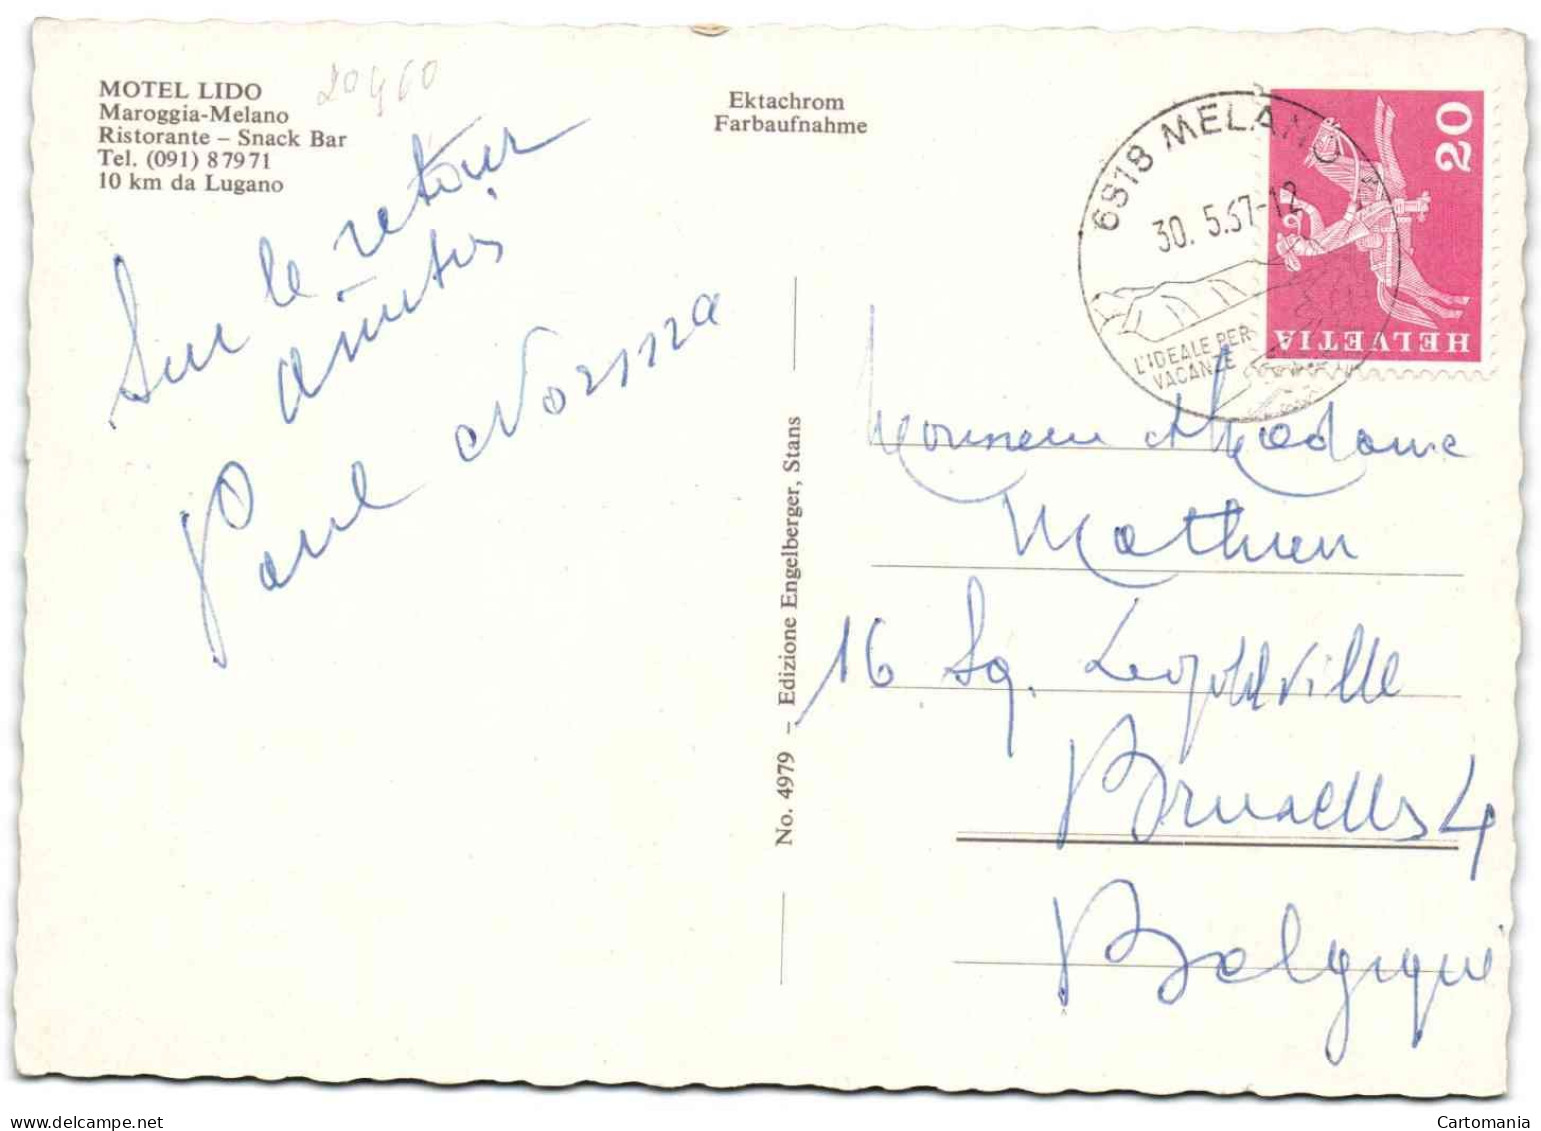 MOTEL LIDO
Maroggia-Melano
Ristorante – Snack Bar
Tel. (091) 8 79 71
10 km da Lugano
20460
Ektachrom
Farbaufnahme
6818 MELANO
30. 5.67-12
L'IDEALE PER
VACANZE
20
HELVETIA
Sur le retour
amitiés
Paul Norma
No. 4979 – Edizione Engelberger, Stans
Monsieur et Madame
Mathieu
16 Sq. Léopoldville
Bruxelles 4
Belgique
Cartomania